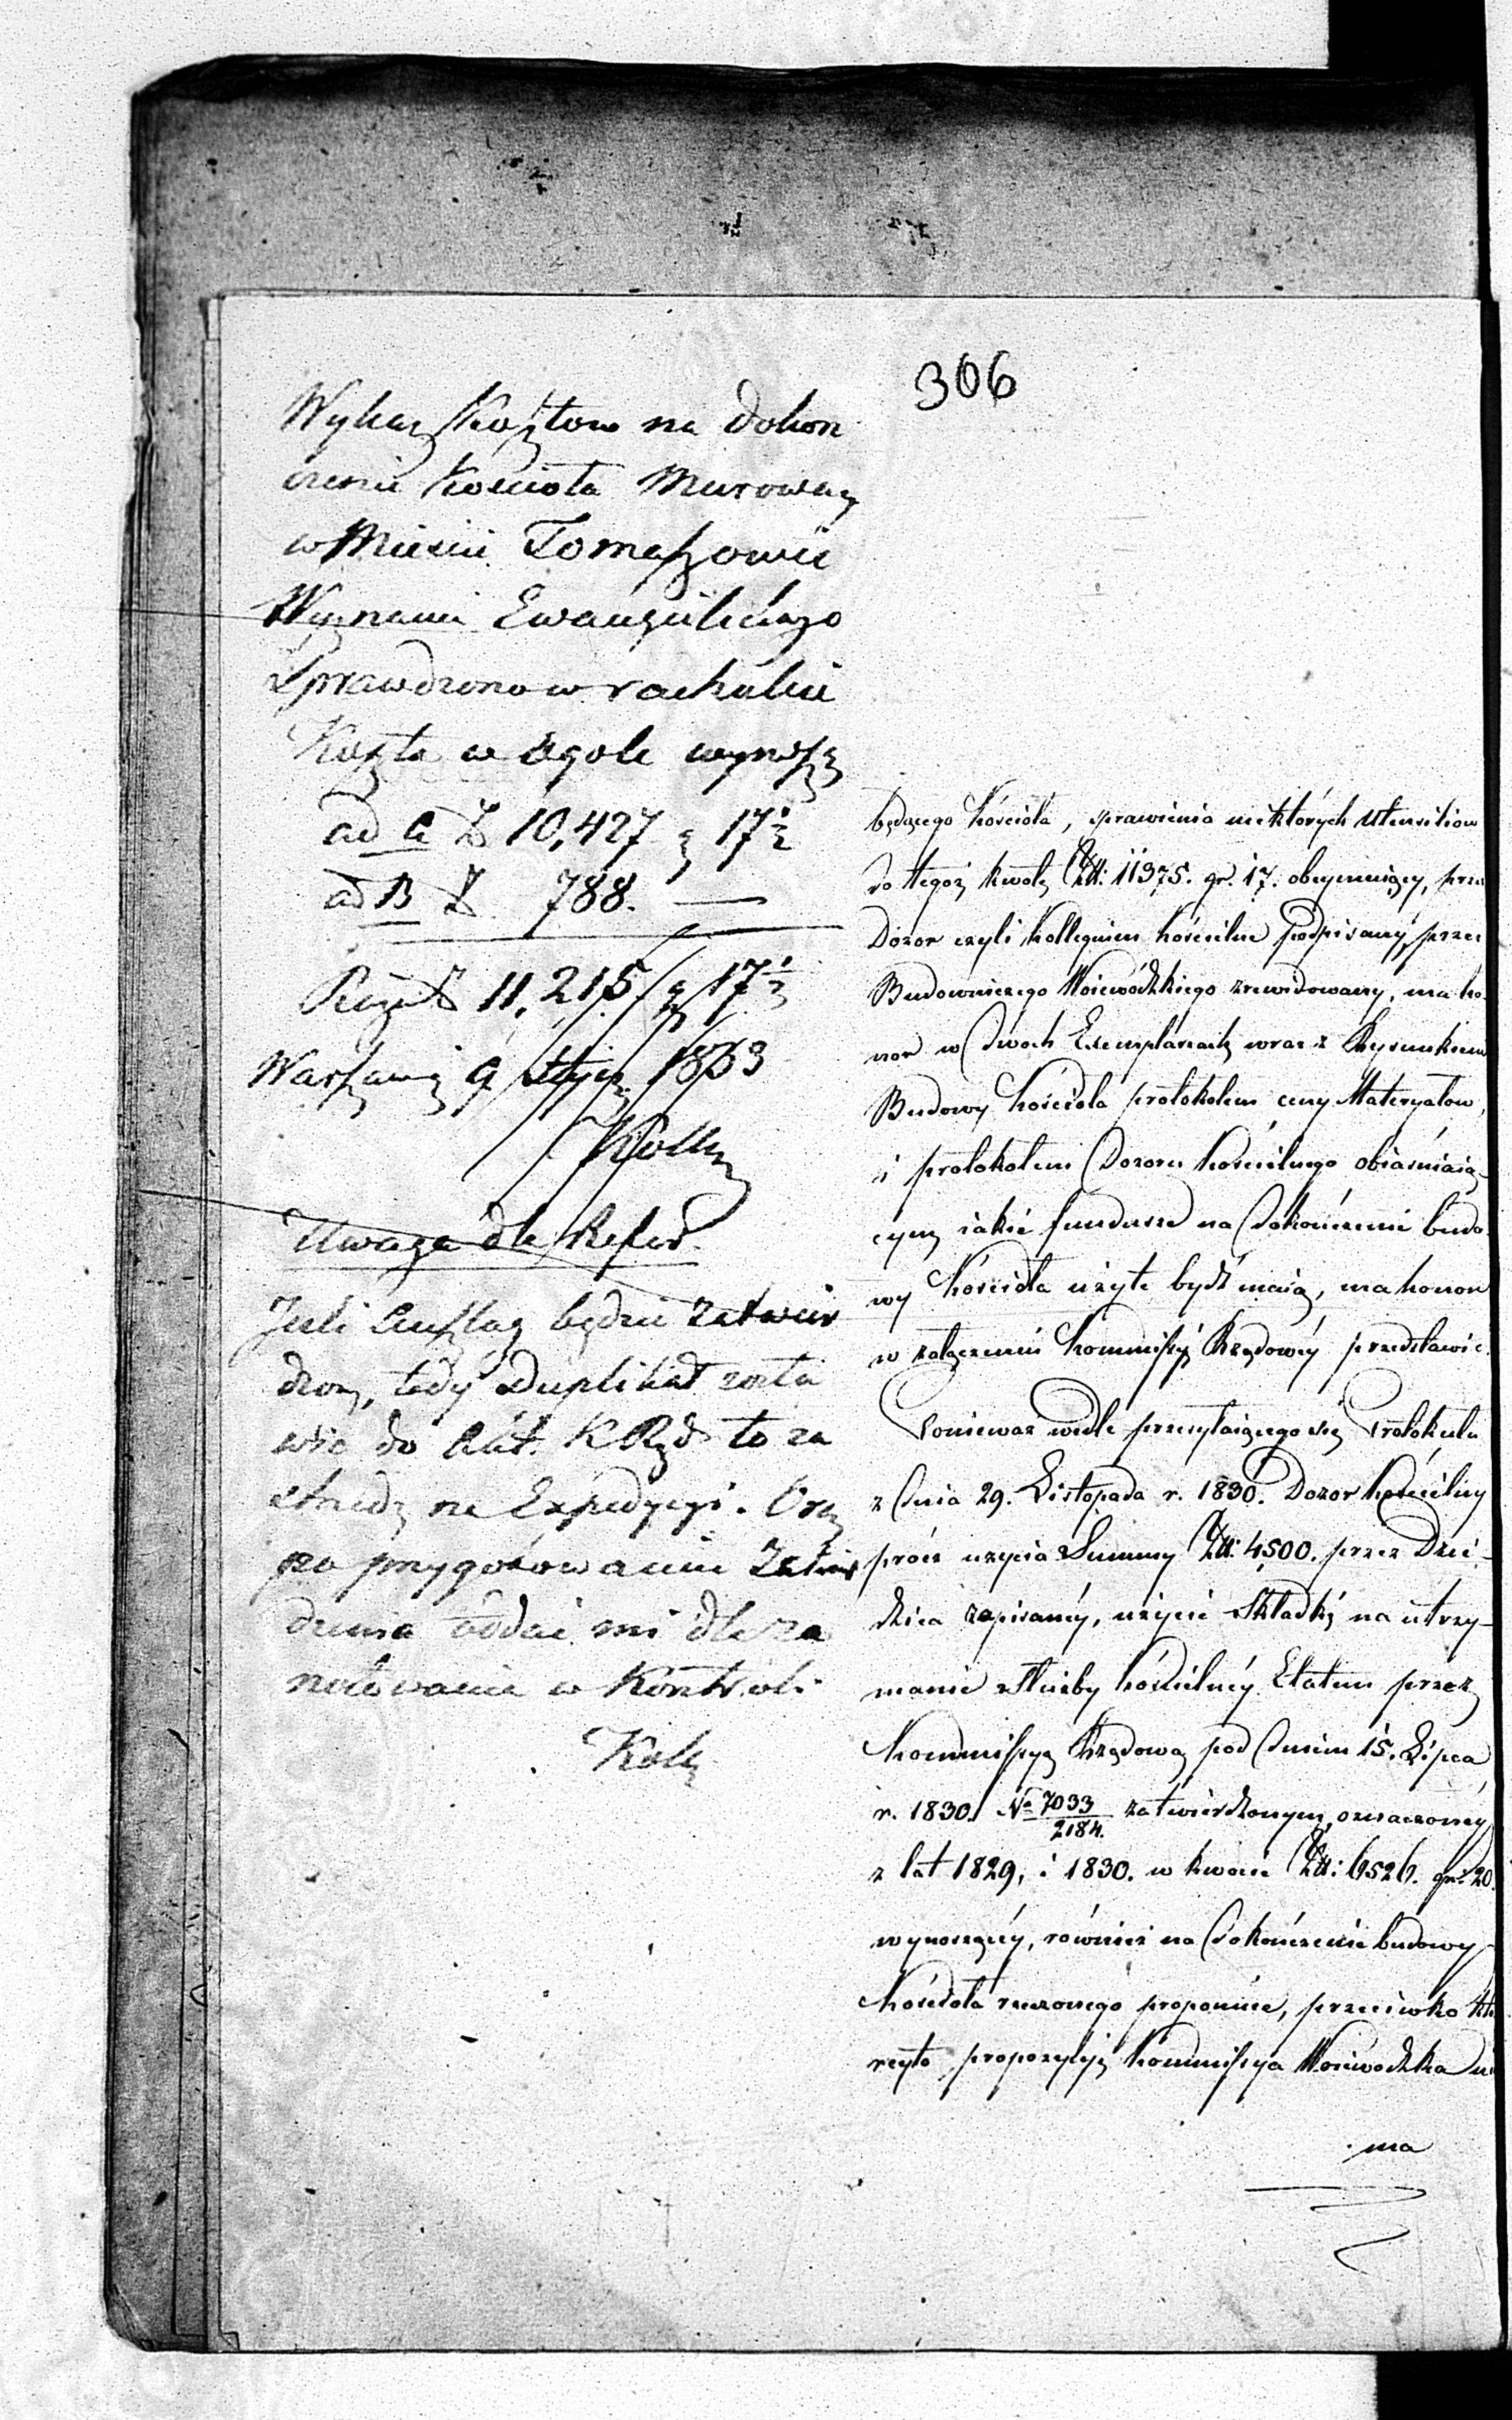 306
Wykaz Kosztow na dokon
czenie Kościoła Murowan
w Mieście Tomaszowie
Wyznania Ewangielickiego
Sprawdzono w rachubie
Koszta w ogole wynoszą
ad A Zł 10,427 g 17½
ad B Zł 788. —
Razem Zł 11,215 g 17½
Warszawa 9 Stycz 1833
Uwaga dla Refer.
Jeśli Anszlag będzie zatwier
dzony, tedy Duplikat zosta
wić do Akt. K Rząd to za
na Expedycyi. Oraz
po przygotowaniu Zatwier
dzenia oddać mi dla za
notowania w Kontroli
będącego Kościoła, sprawienia niektórych Utensiliow
do tegoż kwotę Złł: 11375. gr. 17. obeymuiący, przez
Dozor czyli Kollegium Kościelne podpisany, przez
Budowniczego Woiewódzkiego zrewidowany, ma ho-
nor w dwóch Exemplarzach wraz z Rysunkiem
Budowy Kościoła protokołem ceny Materyałow,
i protokołem Dozoru Kościelnego obiaśniaią-
cym iakie fundusze na dokończenie budo-
wy Kościoła użyte bydź maią, ma honor
w załączeniu Kommissyi Rządowéy przedstawić.
Ponieważ wedle przesyłaiącego się Protokułu
z dnia 29. Listopada r. 1830. Dozor Kościelny
prócz użycia Summy Złł: 4500. przez Dzie-
dzica zapisanéy, użycie Składki na utrzy-
manie służby kościelnéy Etatem przez
Kommissyę Rządową pod dniem 15. Lipca
r. 1830. No 7033/2184. zatwierdzonym, oznaczonéy
z lat 1829, i 1830. w kwocie Złł: 6526. gr. 20.
wynoszącéy, również na dokończenie budowy
Kościoła rzeczonego proponuie, przeciwko któ
reyto propozycyi Kommissya Woiewódzka nie
ma